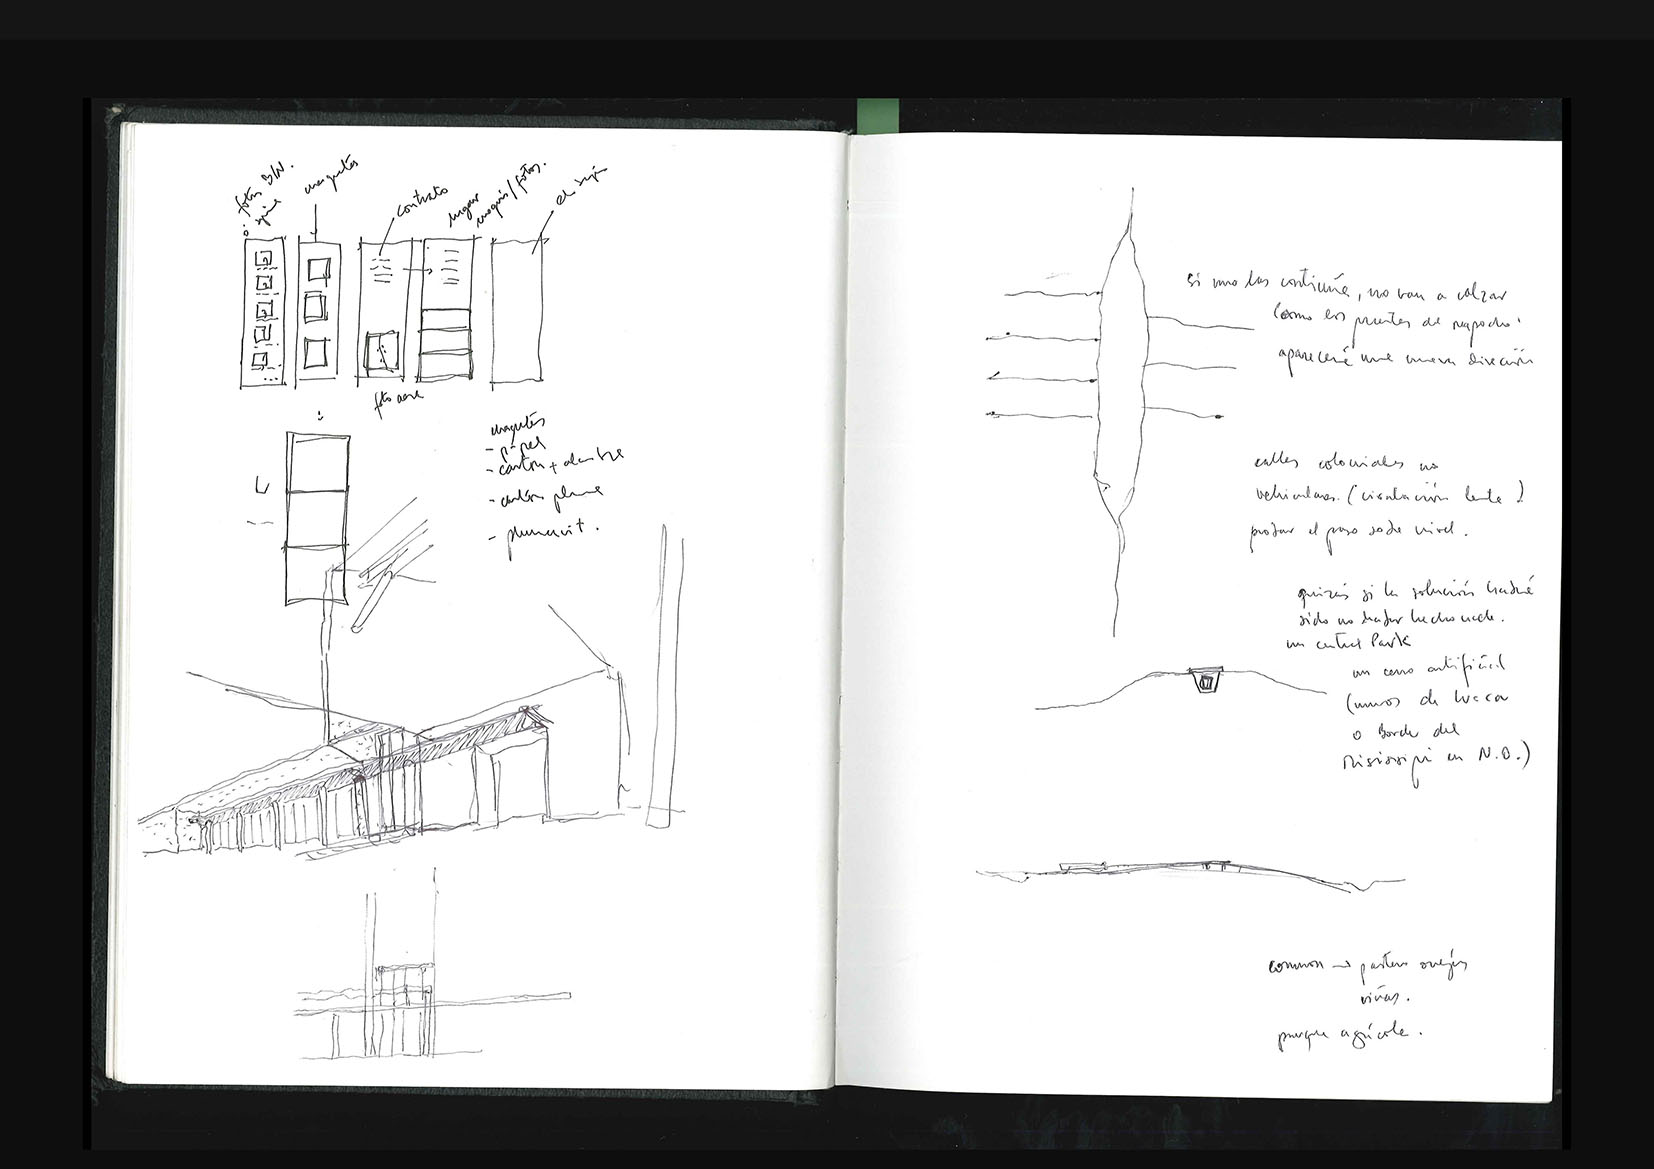 fotos B/N.
maquetas
contrato
lugar
croquis/fotos.
foto aerea
maquetas
- papel
- cartón + alambre
- cartón pluma
- plumavit.
si uno las continúa, no van a calzar
como los puentes del mapocho.
aparecerá una nueva dirección
calles coloniales no
vehiculares. (circulación lenta)
probar el paso sobre nivel.
quizás si la solución habría
sido no haber hecho nada.
un central Park
un cerro artificial
(muros de Lucca
o Borde del
Mississipi en N.O.)
common → pastan ovejas
viñas.
parque agrícola.